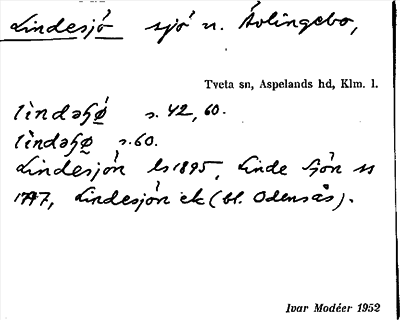 Lindesjö sjö n. Åvlingebo,
Tveta sn, Aspelands hd, Klm. l.
lìndəʃǿ s. 42, 60.
lìndəʃø s. 60.
Lindesjön ls 1895, Linde Sjön ss
1777, Lindesjön ek (bl. Odensås).
Ivar Modéer 1952